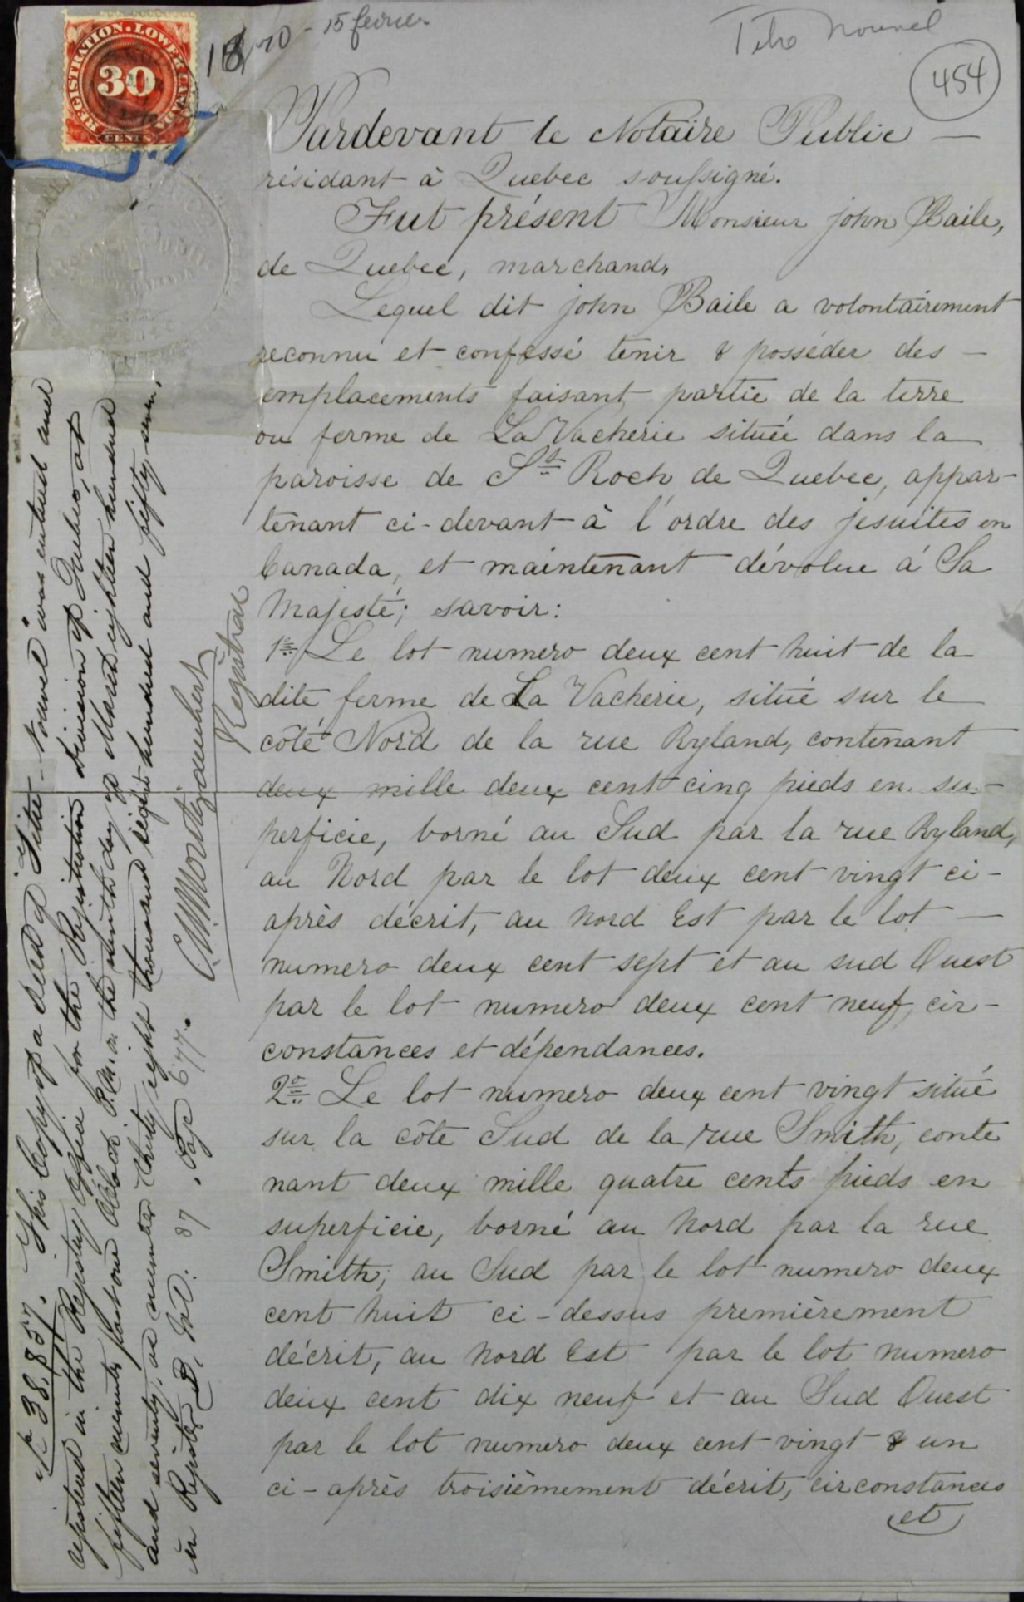 REGISTRATION. LOWER CANADA
30
CENTS
1870 - 15 fevrier
Titre Nouvel
454
Pardevant le Notaire Public —
résidant à Quebec soussigné.
Fut présent Monsieur john Baile,
de Quebec, marchand,
Lequel dit john Baile a volontairement
reconnu et confessé tenir & posséder des —
emplacements faisant partie de la terre
ou ferme de La Vacherie située dans la
paroisse de St Roch de Quebec, appar-
tenant ci-devant à l'ordre des jesuites en
Canada, et maintenant dévolue à Sa
Majesté; savoir:
1o Le lot numero deux cent huit de la
dite ferme de La Vacherie, situé sur le
côté Nord de la rue Ryland, contenant
deux mille deux cent cinq pieds en su-
perficie, borné au Sud par la rue Ryland,
au Nord par le lot deux cent vingt ci-
après décrit, au nord Est par le lot —
numero deux cent sept et au sud Ouest
par le lot numero deux cent neuf, cir-
constances et dépendances.
2o Le lot numero deux cent vingt situé
sur la côte Sud de la rue Smith, conte
nant deux mille quatre cents pieds en
superficie, borné au nord par la rue
Smith; au Sud par le lot numero deux
cent huit ci-dessus premièrement
décrit, au nord Est par le lot numero
deux cent dix neuf et au Sud Ouest
par le lot numero deux cent vingt & un
ci-après troisièmement décrit, circonstances
et
No 38,857. This Copy of a deed of "Titre-nouvel" was entered and
registered in the Registry Office for the Registration division of Quebec, at
fifteen minutes past one o'Clock P.M. on the ninth day of March eighteen hundred
and seventy, as number thirty eight thousand eight hundred and fifty seven,
in Register D, Vol. 37. Page 677.
Registrar